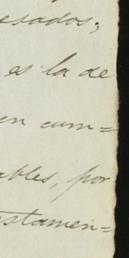 esados;
es la de
en cum=
ables, por
estamen=